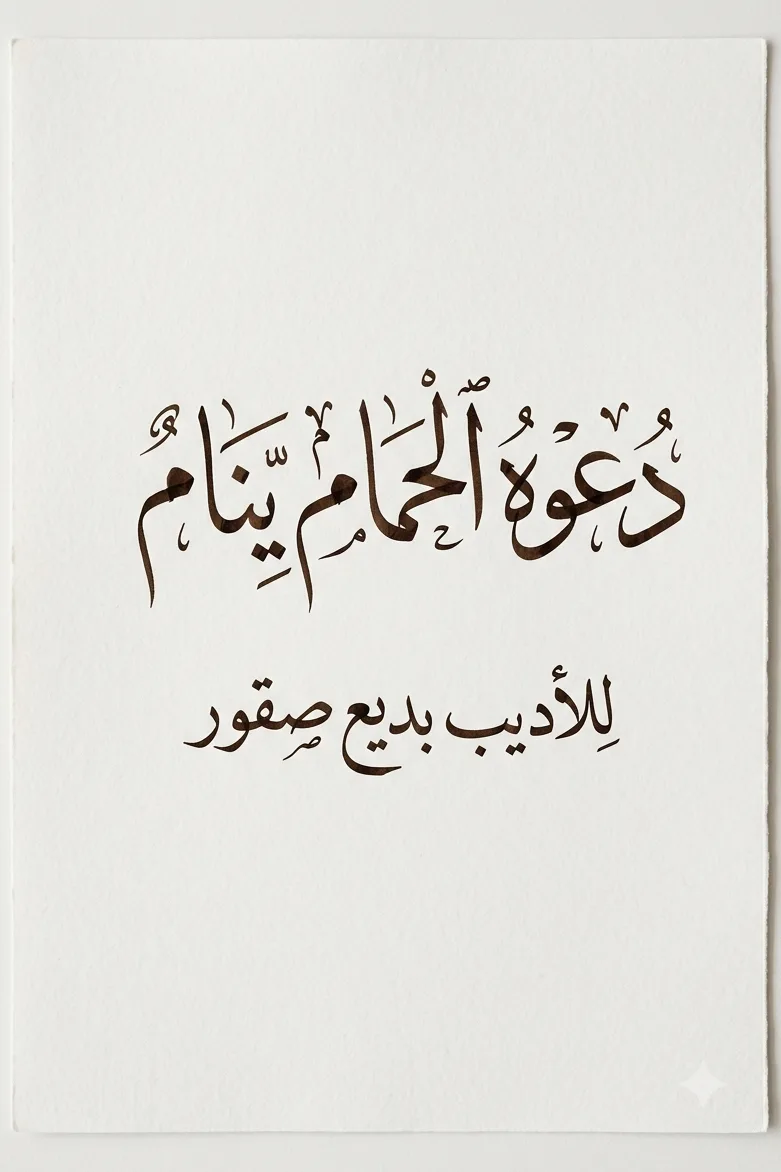 دُعوْهُ ٱلْحمام يِّنام
لِلأديب بديع صقور